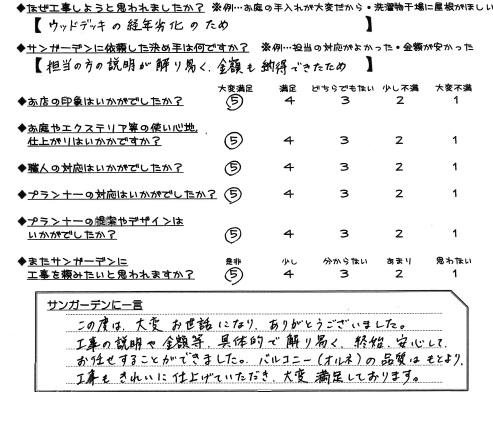 ◆なぜ工事しようと思われましたか？ ※例…お庭の手入れが大変だから・洗濯物干場に屋根がほしい
【 ウッドデッキの経年劣化のため 】
◆サンガーデンに依頼した決め手は何ですか？ ※例…担当の対応がよかった・金額が安かった
【 担当の方の説明が解り易く、金額も納得できたため 】
大変満足 満足 どちらでもない 少し不満 大変不満
◆お店の印象はいかがでしたか？ 5 4 3 2 1
◆お庭やエクステリア等の使い心地、
仕上がりはいかかですか？ 5 4 3 2 1
◆職人の対応はいかがでしたか？ 5 4 3 2 1
◆プランナーの対応はいかがでしたか？ 5 4 3 2 1
◆プランナーの提案やデザインは
いかがでしたか？ 5 4 3 2 1
是非 少し 分からない あまり 思わない
◆またサンガーデンに
工事を頼みたいと思われますか？ 5 4 3 2 1
サンガーデンに一言
この度は、大変お世話になり、ありがとうございました。
工事の説明や金額等、具体的で解り易く、終始、安心して、
お任せすることができました。バルコニー(オルネ)の品質はもとより、
工事もきれいに仕上げていただき、大変満足しております。